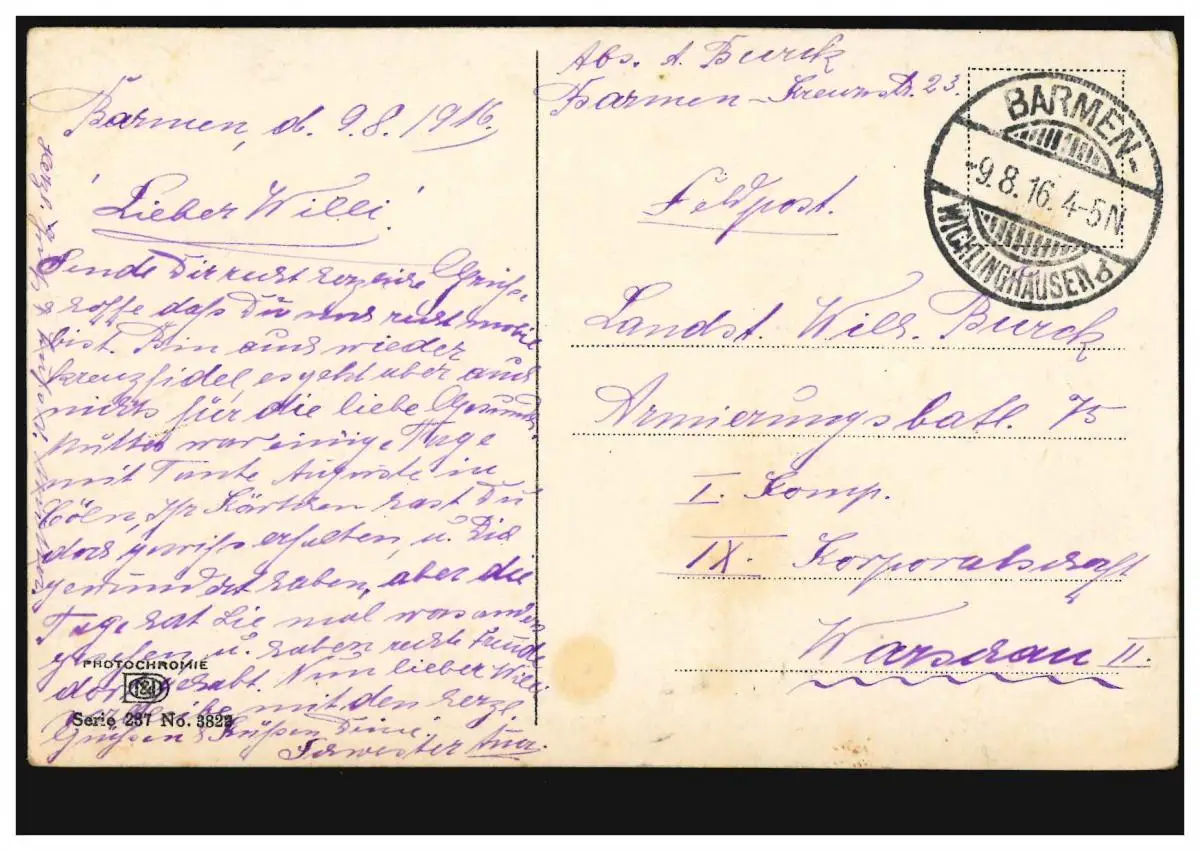 Barmen, d. 9.8.1916.
Lieber Willi!
Sende Dir recht herzliche Grüße
hoffe daß Du noch recht mobil
bist. Bin auch wieder
kreuzfidel, es geht aber auch
nichts für die liebe Gesundh.
Mutter war einige Tage
mit Tante Auguste in
Cöln, Ihr Kärtchen hast Du
doch gewiß erhalten, u. Dich
gewundert haben, aber die
Tage hat Sie mal was
gesehen u. haben recht Freude
gehabt. Nun lieber Willi
mit den herzl.
Grüßen & Küßen Deine
Schwester
Herzl. Grüße &
PHOTOCHROMIE
Serie 237 No. 3822
Abs. A. Burck
Barmen - Kreuzstr. 23.
BARMEN-
-9.8.16. 4-5N
WICHLINGHAUSEN d
Feldpost.
Landst. Wilh. Burck
Armierungsbatl. 75
I. Komp.
IX. Korporalschaft
Warschau II.